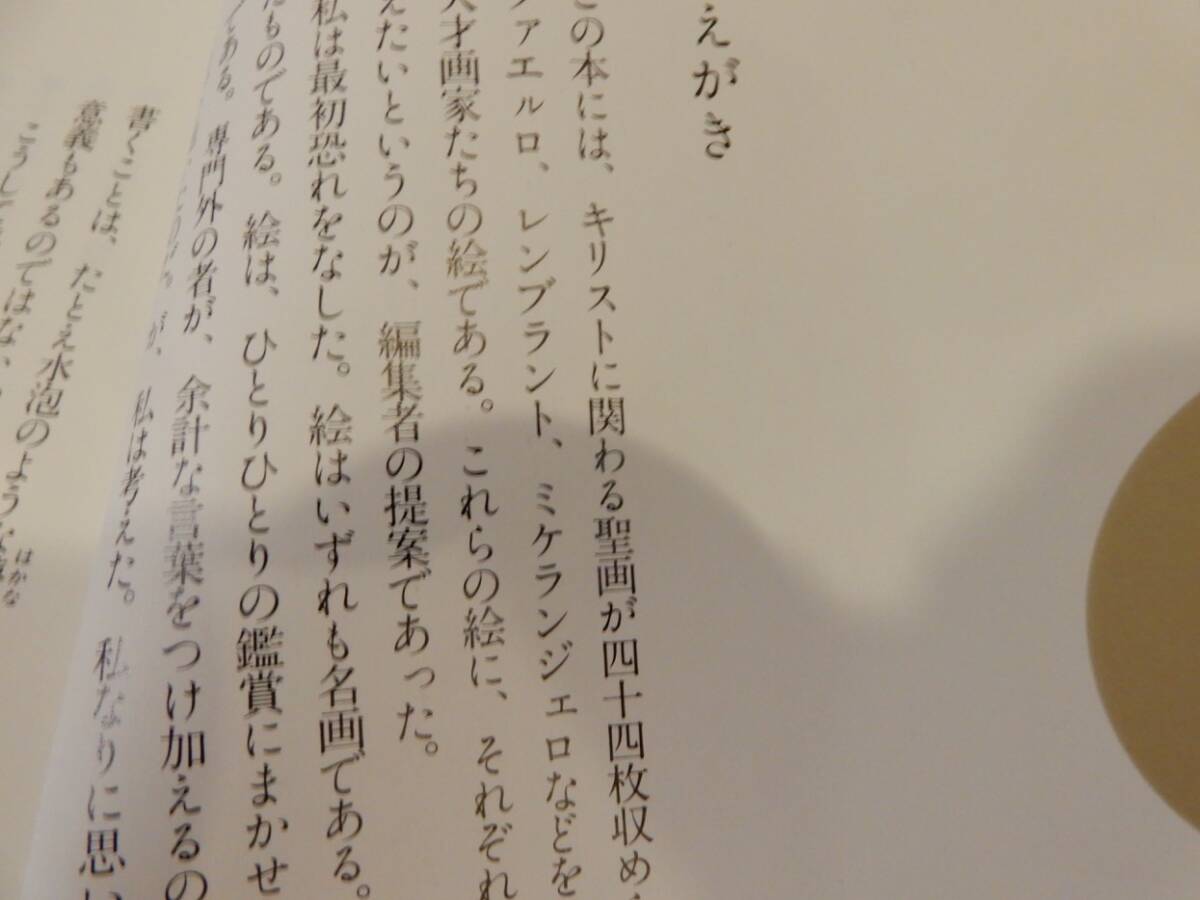 えがき
この本には、キリストに関わる聖画が四十四枚収め
ファエルロ、レンブラント、ミケランジェロなどを
天才画家たちの絵である。これらの絵に、それぞれ
えたいというのが、編集者の提案であった。
私は最初恐れをなした。絵はいずれも名画である。
たものである。絵は、ひとりひとりの鑑賞にまかせ
である。専門外の者が、余計な言葉をつけ加えるの
が、私は考えた。私なりに思い
書くことは、たとえ水泡のような
はかな
意義もあるのではな
こうして